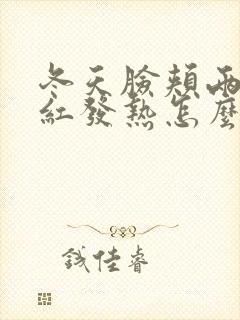 冬天臉頰兩
紅發熱怎麼
錢佳睿